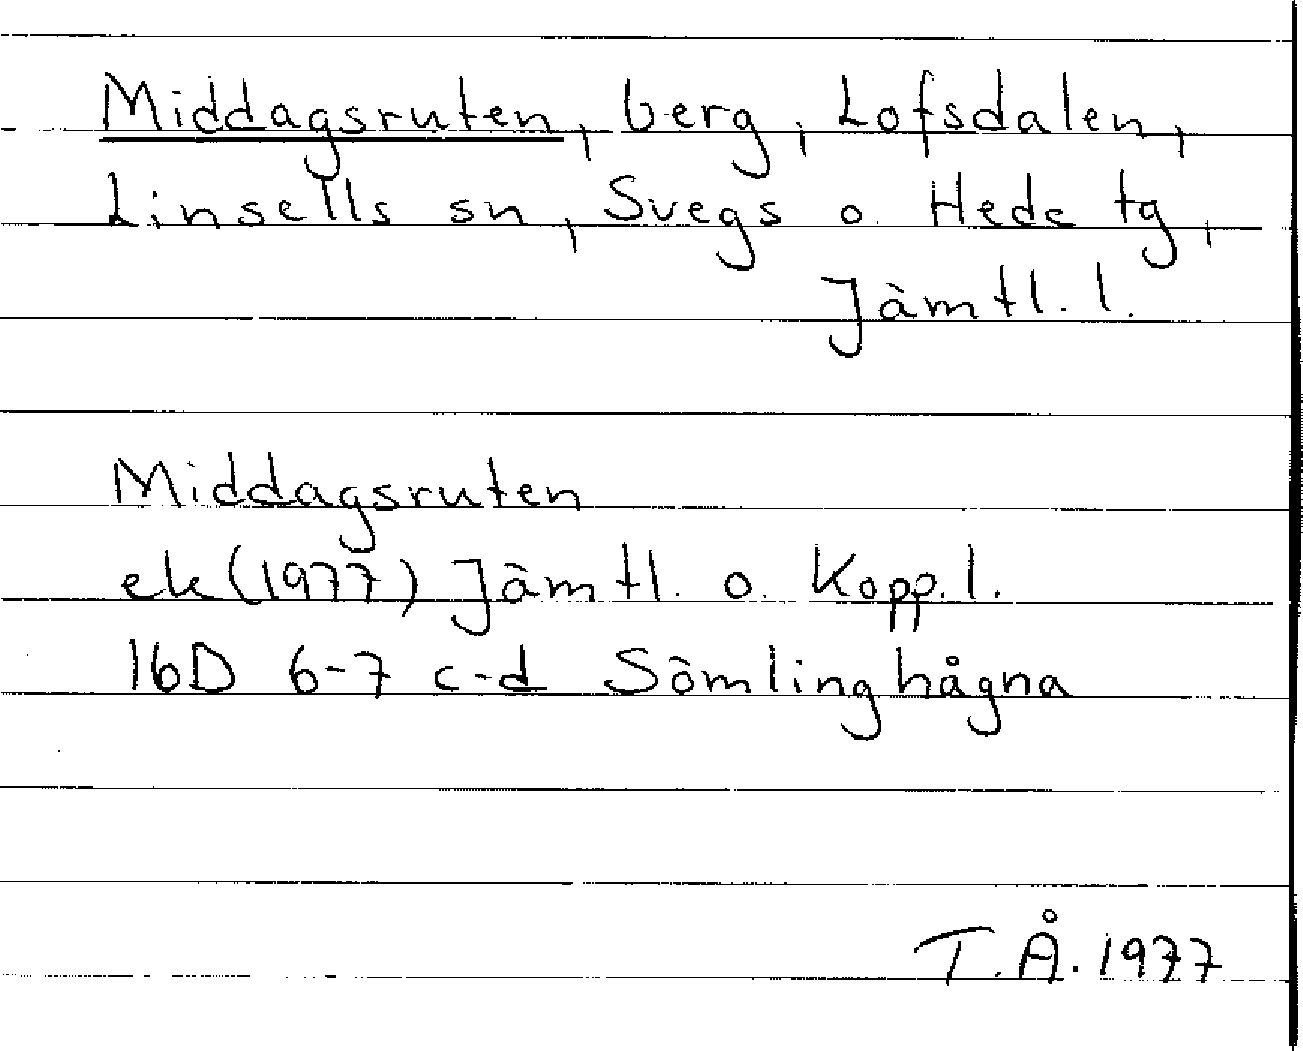 Middagsruten, berg, Lofsdalen,
Linsells sn, Svegs o. Hede tg,
Jämtl. l.
Middagsruten
ek (1977) Jämtl. o. Kopp. l.
16D 6-7 c-d Sömlinghågna
T.Å. 1977